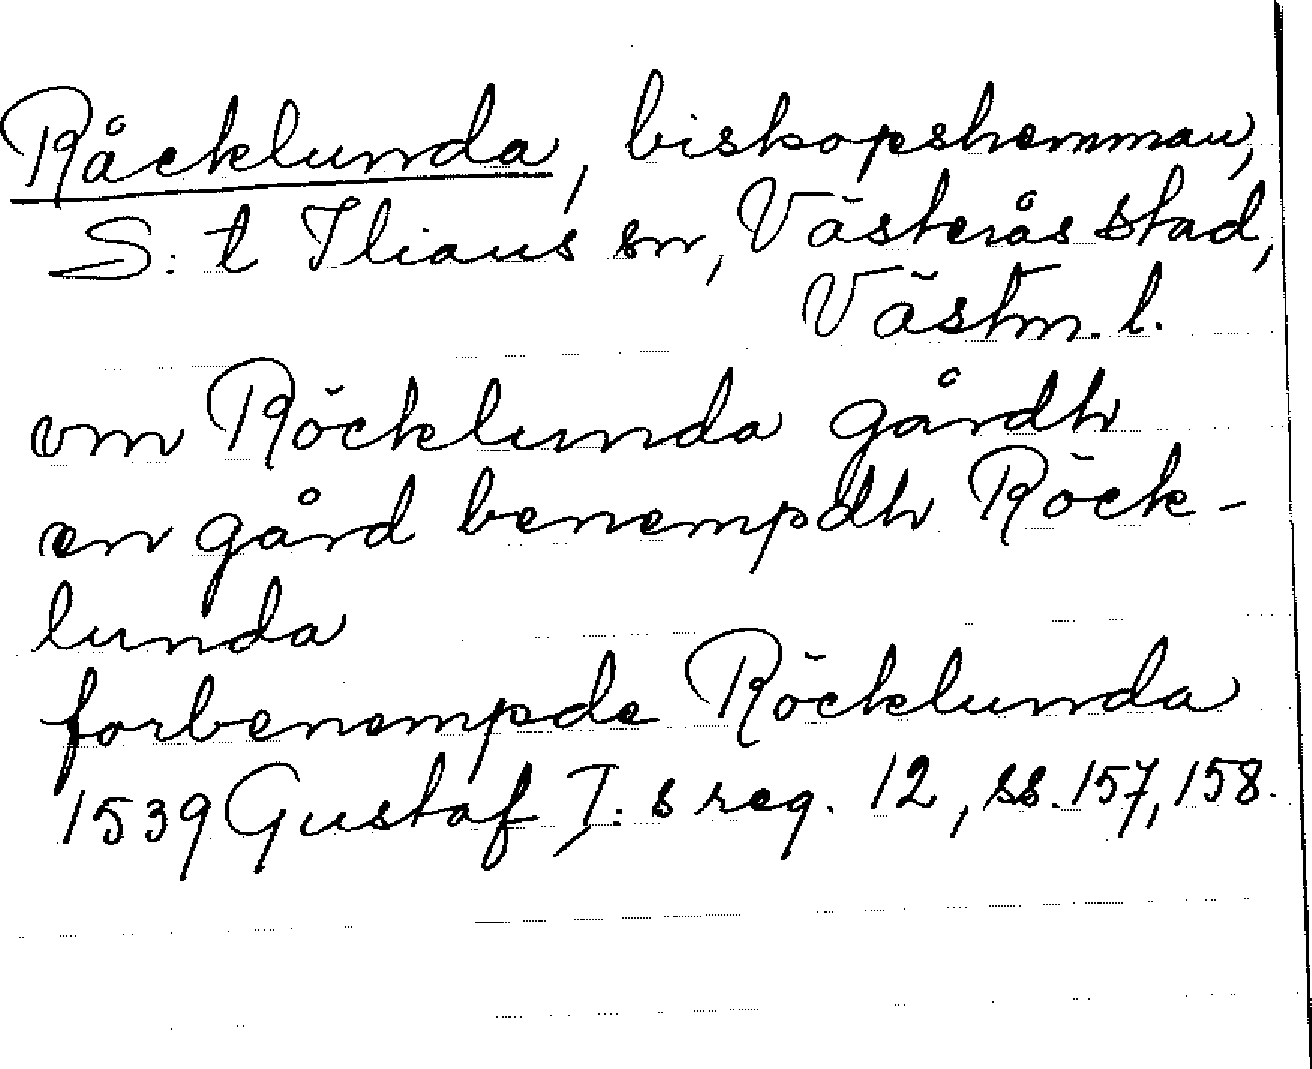 Råcklunda, biskopshemman,
S:t Ilians sn, Västerås stad,
Västm. l.
om Röcklunda gårdh
en gård benempdh Röck-
lunda
forbenempde Röcklunda
1539 Gustaf I:s reg. 12, ss. 157, 158.